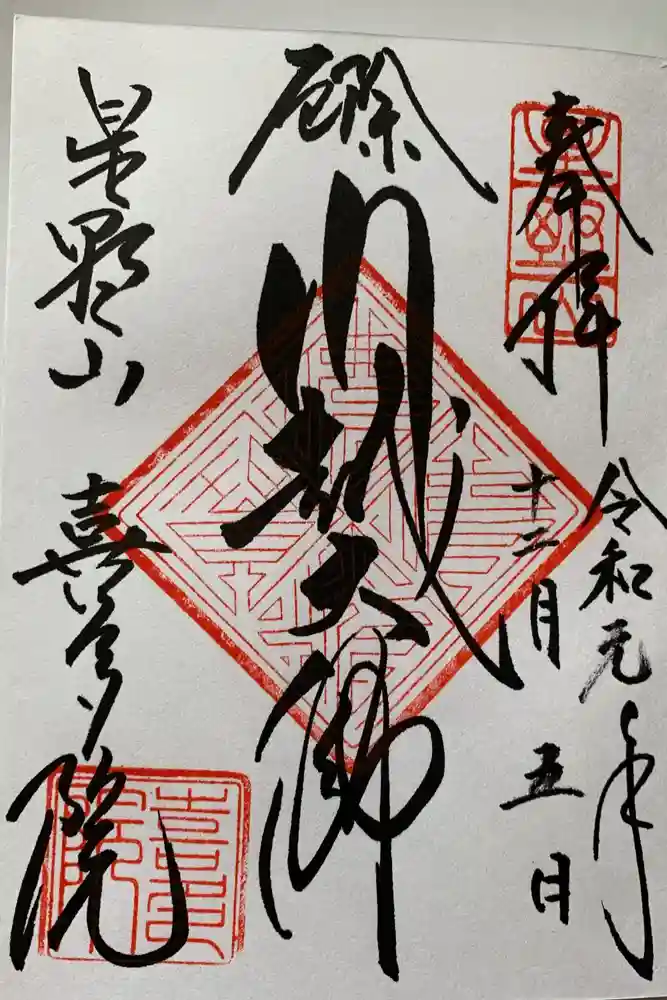 奉拝
令和元年
十二月五日
厄除
川越大師
星野山
喜多院
喜多院